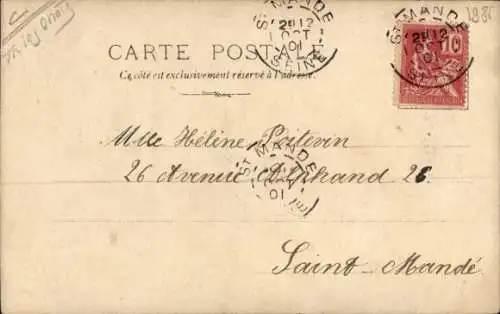 CARTE POSTALE
Ce côté est exclusivement réservé à l'adresse.
ST MANDE
OCT
01
SEINE
ST MANDE
01
10
Mlle Hélène Poitevin
26 Avenue Alphand 26.
ST MANDE
01
Saint-Mandé